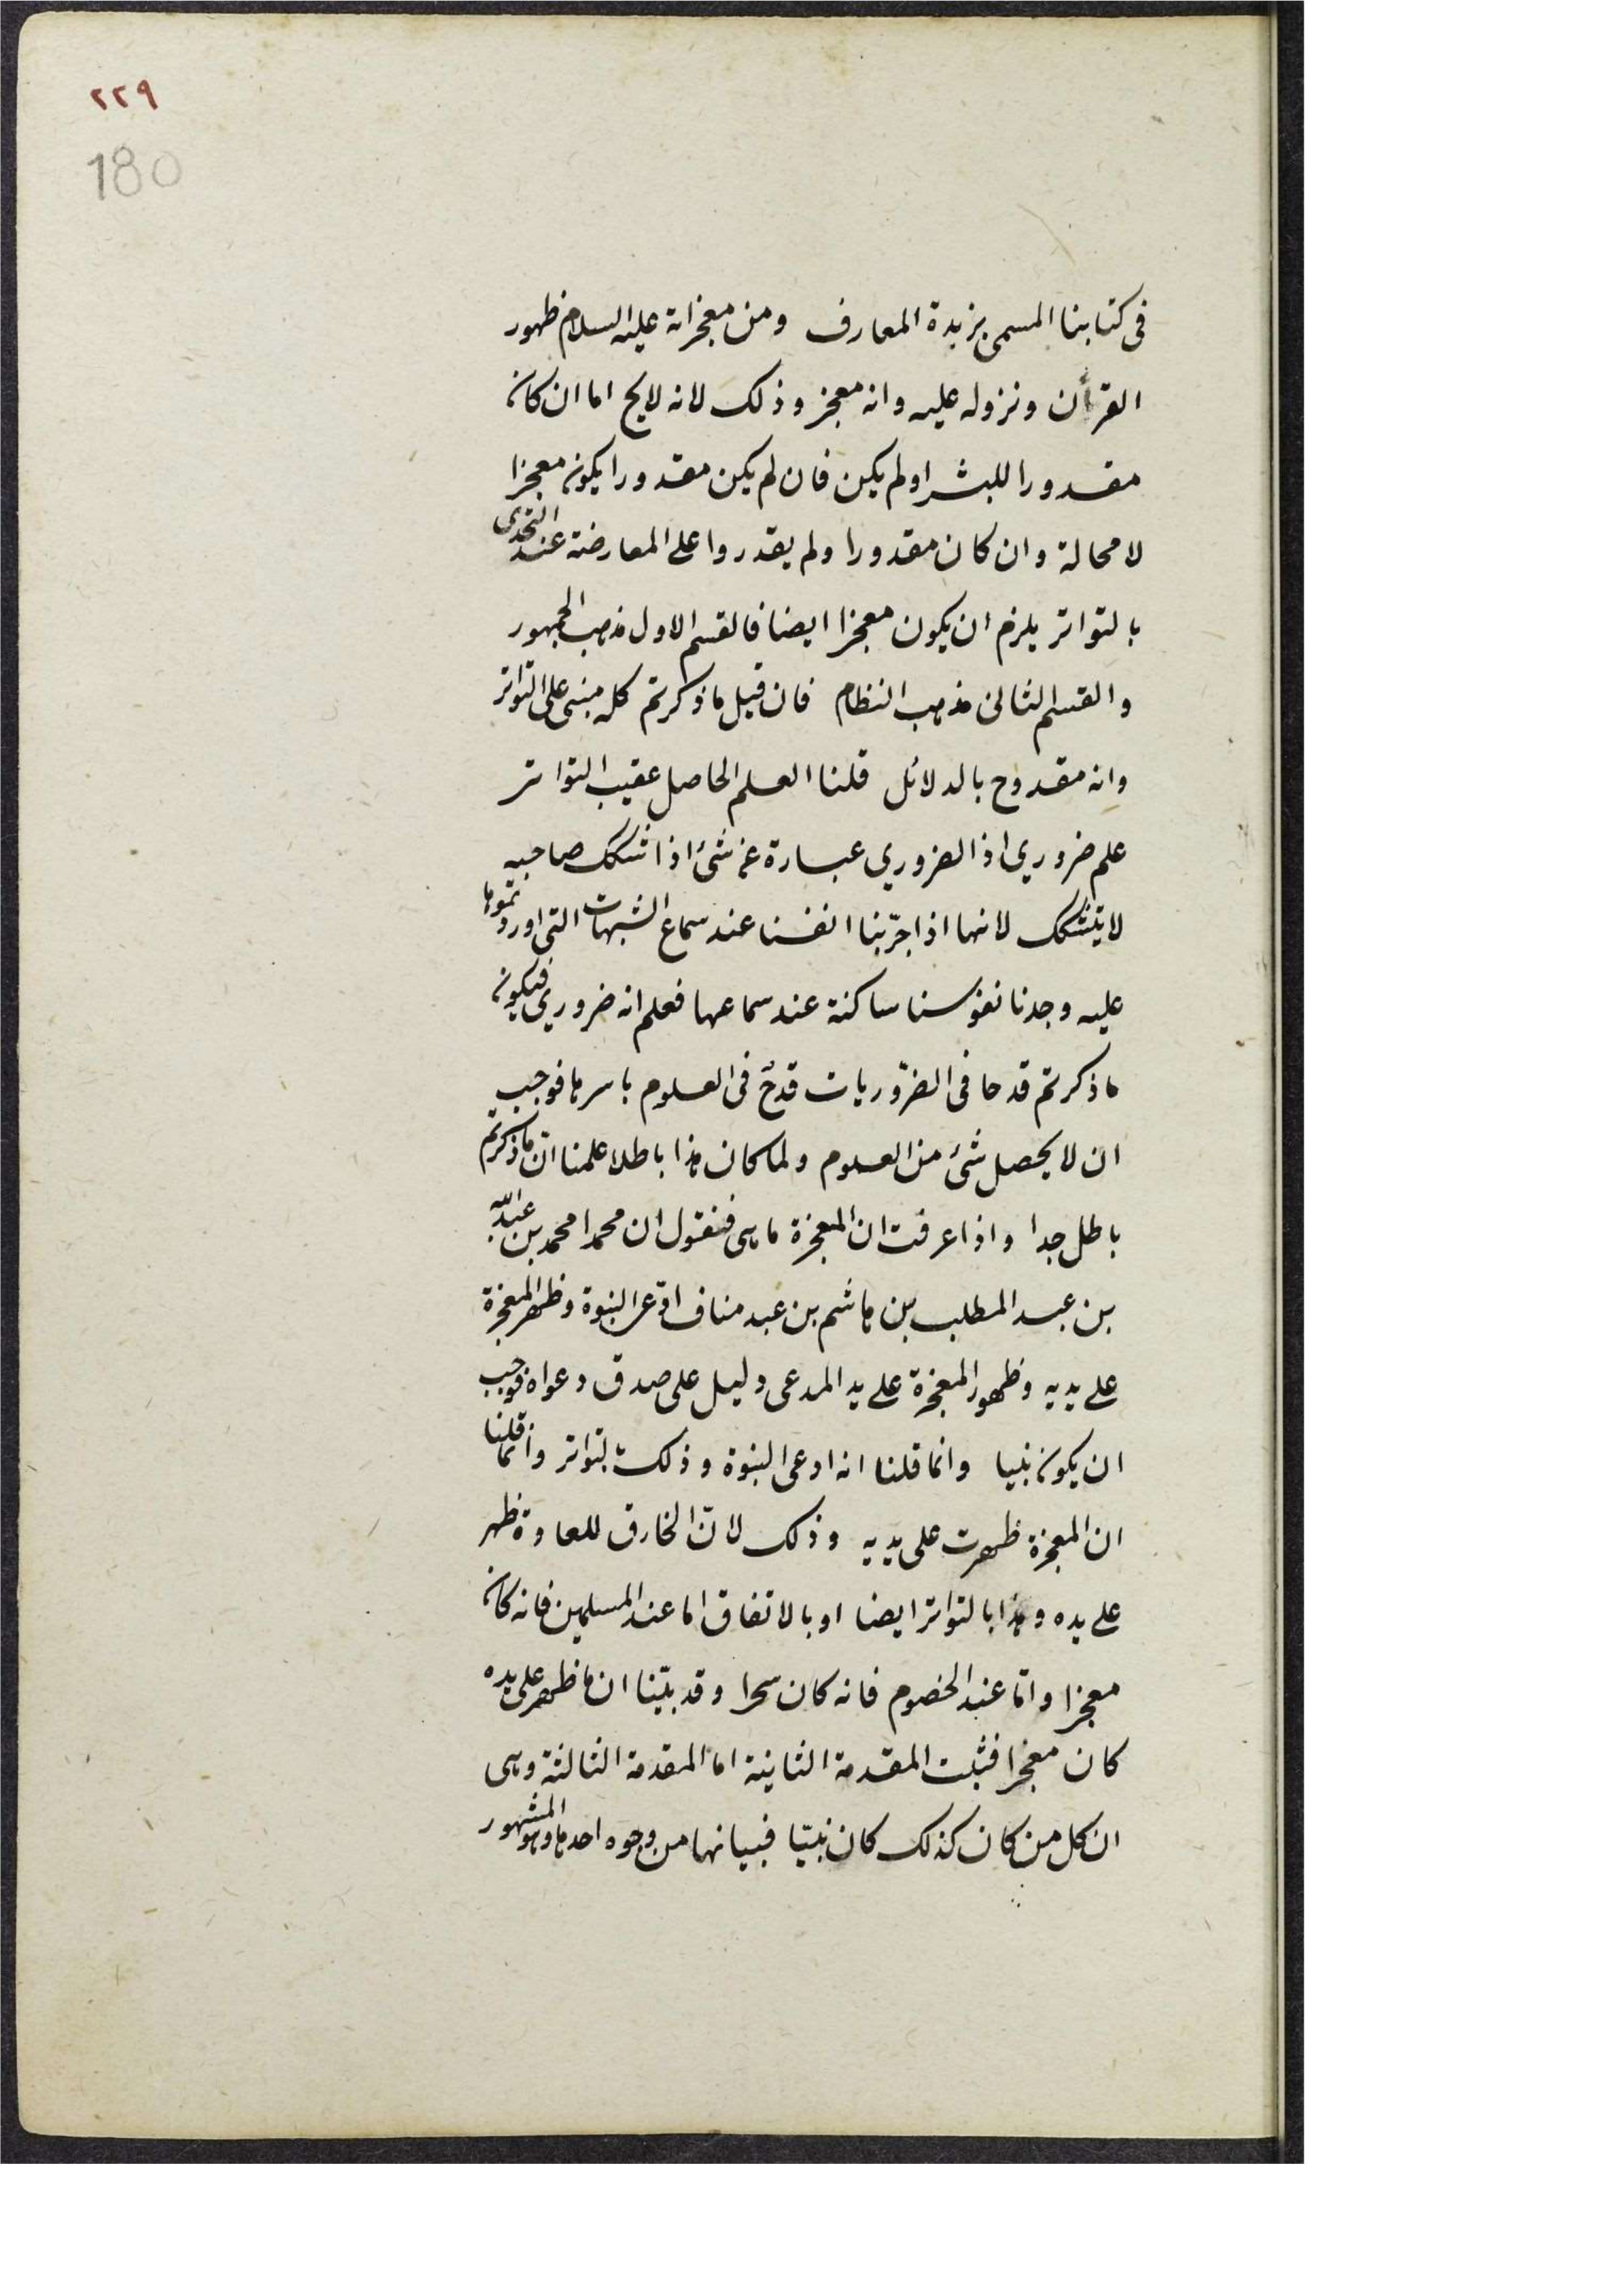 ٢٢٩
180
فى كتابنا المسمى بزبدة المعارف ومن معجزاته عليه السلام ظهور
القرأن ونزوله عليه وانه معجز وذلك لانه لايخ اما ان كان
مقدورا للبشر اولم يكن فان لم يكن مقدورا يكون معجزا
لا محالة وان كان مقدورا ولم يقدروا على المعارضة عند التحدى
بالتواتر يلزم ان يكون معجزا ايضا فالقسم الاول مذهب الجمهور
والقسم الثانى مذهب النظام فان قيل ما ذكرتم كله مبنى على التواتر
وانه مقدوح بالدلائل قلنا العلم الحاصل عقيب التواتر
علم ضروري اذ الضروري عبارة عن شئ اذا شكك صاحبه
لا يتشكك لانها اذا جرّبنا انفسنا عند سماع الشبهات التى اوردتموها
عليه وجدنا نفوسنا ساكنة عند سماعها فعلم انه ضروري فيكون
ما ذكرتم قدحا فى الضرّوريات قدحٌ فى العلوم باسرها فوجب
ان لا يحصل شئ من العلوم ولما كان هذا باطلا علمنا انّ ما ذكرتم
باطل جدا واذا عرفت ان المعجزة ما هى فنقول ان محمدا محمد بن عبد الله
بن عبد المطلب بن هاشم بن عبد مناف ادّعى النبوة وظهر المعجزة
على يديه وظهور المعجزة على يد المدعى دليل على صدق دعواه فوجب
ان يكون نبيا وانما قلنا انه ادعى النبوة وذلك بتواتر وانّما قلنا
ان المعجزة ظهرت على يديه وذلك لانّ الخارق للعادة ظهر
على يده وهذا بالتواتر ايضا او بالاتفاق اما عند المسلمين فانه كان
معجزا وامّا عند الخصوم فانه كان سحرا وقد بيّنا ان ما ظهر على يده
كان معجزا فثبلت المقدمة الثانية اما المقدمة الثالثة وهى
ان كل من كان كذلك كان نبيّا فبيانها من وجوه احدها وهو المشهور